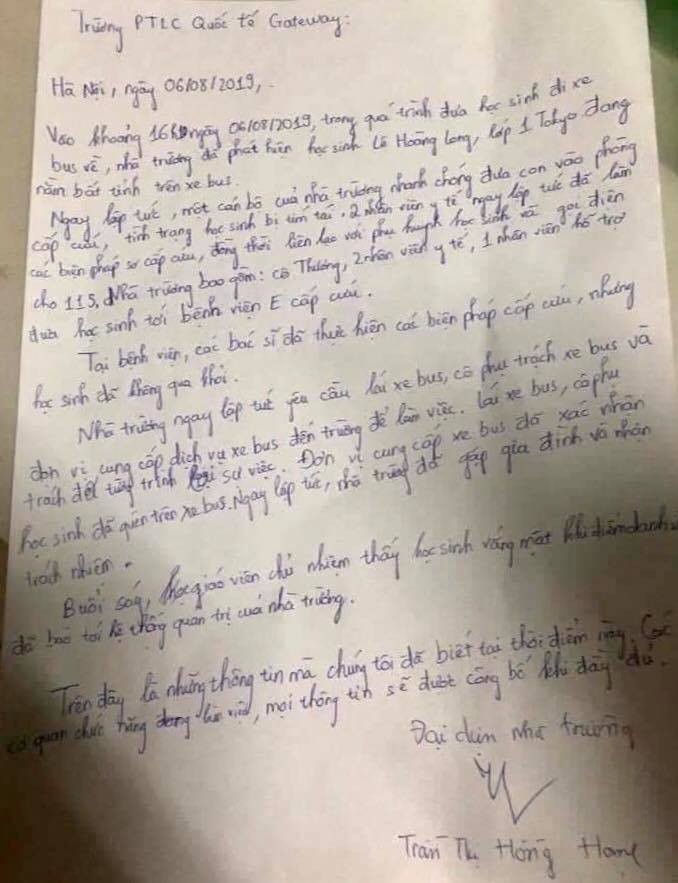 Trường PTLC Quốc tế Gateway:
Hà Nội, ngày 06/08/2019,
Vào khoảng 16h ngày 06/08/2019, trong quá trình đưa học sinh đi xe
bus về, nhà trường đã phát hiện học sinh Lê Hoàng Long, lớp 1 Tokyo đang
nằm bất tỉnh trên xe bus.
Ngay lập tức, một cán bộ của nhà trường nhanh chóng đưa con vào phòng
cấp cứu, tình trạng học sinh bị tím tái, 2 nhân viên y tế ngay lập tức đã làm
các biện pháp sơ cấp cứu, đồng thời liên lạc với phụ huynh học sinh và gọi điện
cho 115. Nhà trường bao gồm: cô Thương, 2 nhân viên y tế, 1 nhân viên hỗ trợ
đưa học sinh tới bệnh viện E cấp cứu.
Tại bệnh viện, các bác sĩ đã thực hiện các biện pháp cấp cứu, nhưng
học sinh đã không qua khỏi.
Nhà trường ngay lập tức yêu cầu lái xe bus, cô phụ trách xe bus và
đơn vị cung cấp dịch vụ xe bus đến trường để làm việc. Lái xe bus, cô phụ
trách để tường trình sự việc. Đơn vị cung cấp xe bus đã xác nhận
học sinh đã quên trên xe bus. Ngay lập tức, nhà trường đã gặp gia đình và nhận
trách nhiệm.
Buổi sáng, giáo viên chủ nhiệm thấy học sinh vắng mặt khi điểm danh
đã báo tới hệ thống quản trị của nhà trường.
Trên đây là những thông tin mà chúng tôi đã biết tại thời điểm này. Các
cơ quan chức năng đang làm việc, mọi thông tin sẽ được công bố khi đầy đủ.
Đại diện nhà trường
Trần Thị Hồng Hạnh